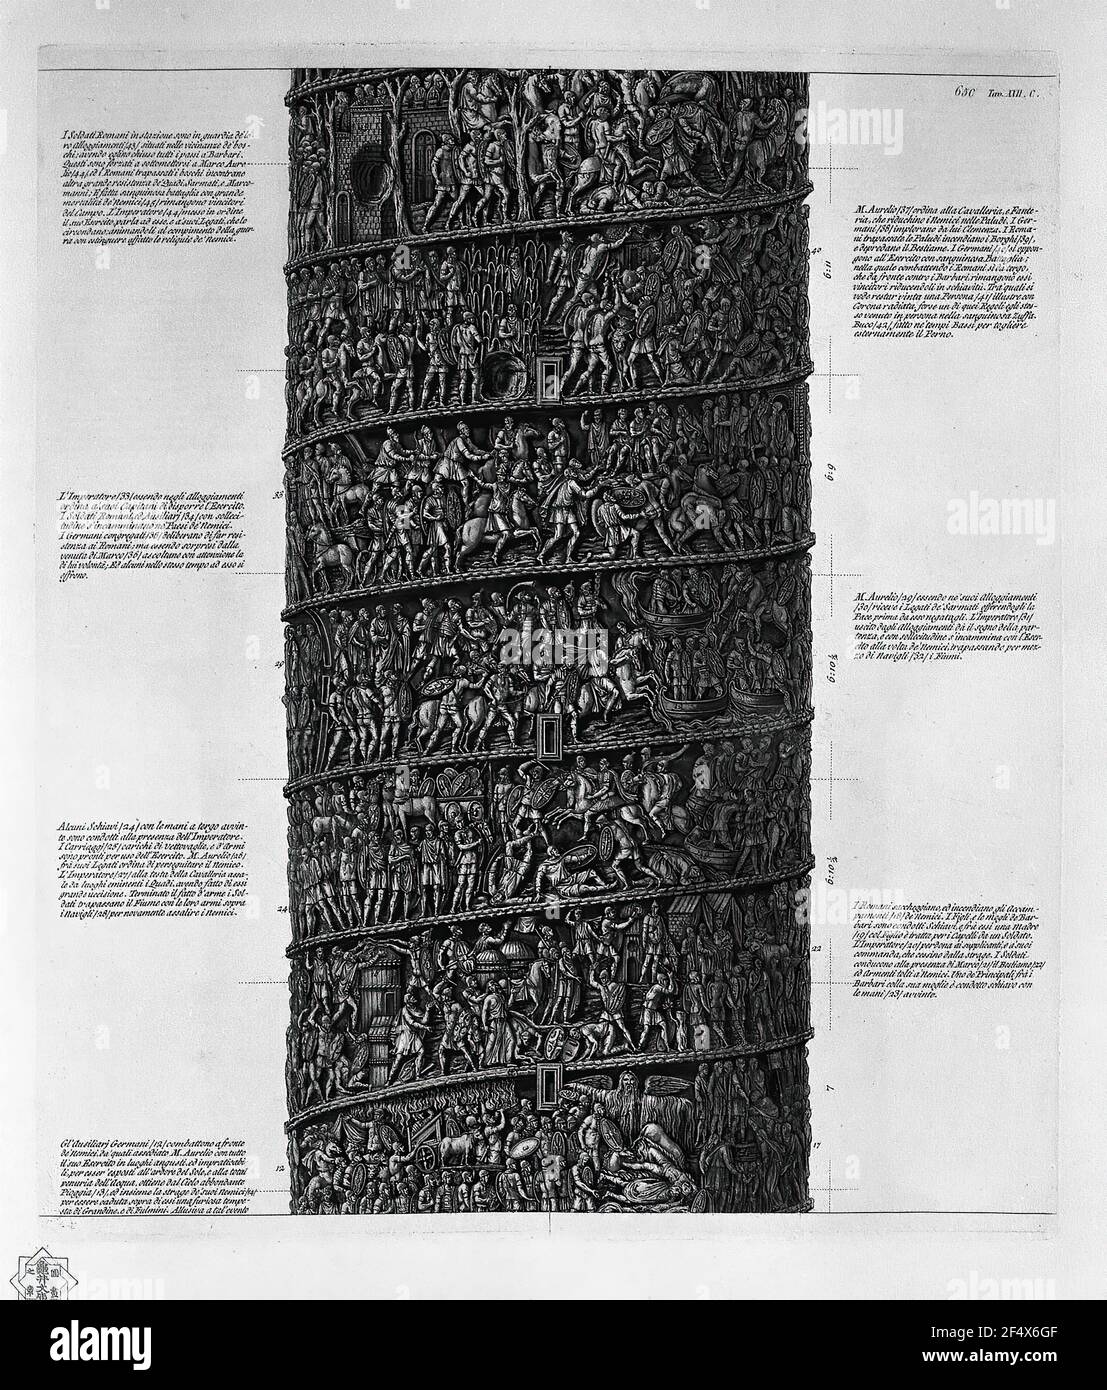 650 Tav. XXII. C.
I Soldati Romani in stazione sono in guardia de' lo-
ro alloggiamenti /43/ situati nelle vicinanze de' bos-
chi; avendo eglino chiuso tutti i passi a' Barbari.
Questi sono forzati a sottomettersi a Marco Aure-
lio /44/, ed i Romani trapassati i boschi incontrano
altra grande resistenza de' Quadi, Sarmati, e Marco-
manni: E' fatta sanguinosa battaglia con grande
mortalità de' Nemici /45/ rimangono vincitori
del Campo. L'Imperatore /44/ messo in ordine
il suo Esercito, parla ad esso, e a' suoi Legati, che lo
circondano; animandoli al compimento della guer-
ra con estinguere affatto le reliquie de' Nemici.
M. Aurelio /37/ ordina alla Cavalleria, e Fante-
ria, che riduchino i Nemici nelle Paludi. I Ger-
mani /38/ implorano da lui Clemenza. I Roma-
ni trapassate le Paludi incendiano i Borghi /39/,
e depredano il Bestiame. I Germani /40/ si oppon-
gono all'Esercito con sanguinosa Battaglia;
nella quale combattendo i Romani sì da tergo,
che da fronte contro i Barbari, rimangono essi
vincitori riducendoli in schiavitù. Tra' quali si
vede restar vinta una Persona /41/ illustre con
Corona radiata, forse un di quei Regoli egli stes-
so venuto in persona nella sanguinosa zuffa.
Buco /42/, fatto ne' tempi Bassi per togliere
esternamente il Perno.
40
6:11
6:9
L'Imperatore /33/ essendo negli alloggiamenti
ordina a' suoi Capitani di disporre l'Esercito.
I Soldati Romani, ed Ausiliarj /34/ con solleci-
tudine s'incamminano ne' Paesi de' Nemici.
I Germani congregati /35/ delibirano di far resi-
stenza ai Romani; ma essendo sorpresi dalla
venuta di Marco /36/ ascoltano con attenzione la
di lui volontà; Ed alcuni nello stesso tempo ad esso si
offrono.
33
M. Aurelio /29/ essendo ne' suoi Alloggiamenti
/30/ riceve i Legati de' Sarmati offerendogli la
Pace prima da esso negatagli. L'Imperatore /31/
uscito dagli alloggiamenti dà il segno della par-
tenza, e con sollecitudine s'incammina con l'Eser-
cito alla volta de' Nemici, trapassando per mez-
zo di Navigli /32/ i Fiumi.
29
6:10 ½
Alcuni Schiavi /24/ con le mani a tergo avvin-
te sono condotti alla presenza dell'Imperatore.
I Carriaggi /25/ carichi di vettovaglie, e d'Armi
sono pronti per uso dell'Esercito. M. Aurelio /26/
frà suoi Legati ordina di perseguitare il Nemico.
L'Imperatore /27/ alla testa della Cavalleria assa-
le da luoghi eminenti i Quadi, avendo fatto di essi
grande uccisione. Terminato il fatto d'arme i Sol-
dati trapassano il Fiume con le loro armi sopra
i Navigli /28/ per novamente assalire i Nemici.
24
6:10 ½
I Romani saccheggiano, ed incendiano gli Accam-
pamenti /18/ de' Nemici. I Figli, e le mogli de' Bar-
bari sono condotti Schiavi, e frà essi una Madre
/19/ col Figlio è tratta per i Capelli da un Soldato.
L'Imperatore /20/ perdona ai supplicanti; e a' suoi
commanda, che cessino dalla strage. I Soldati
conducono alla presenza di Marco /21/ il Bestiame /22/
ed Armenti tolti a' Nemici. Uno de' Principali frà i
Barbari colla sua moglie è condotto schiavo con
le mani /23/ avvinte.
22
7
Gl'Ausiliarj Germani /12/ combattono a fronte
de' Nemici, da' quali assediato M. Aurelio con tutto
il suo Esercito in luoghi angusti, ed impraticabi-
li, per esser' esposti all'ardore del Sole, e alla total
penuria dell'Acqua, ottiene dal Cielo abbondante
Pioggia /13/, ed insieme la strage de' suoi Nemici /14/
per essere caduta sopra di essi una furiosa tempe-
sta di Grandine, e di Fulmini. Allusiva a tal'evento
12
17
alamy
Image ID: 2F4X6GF
www.alamy.com